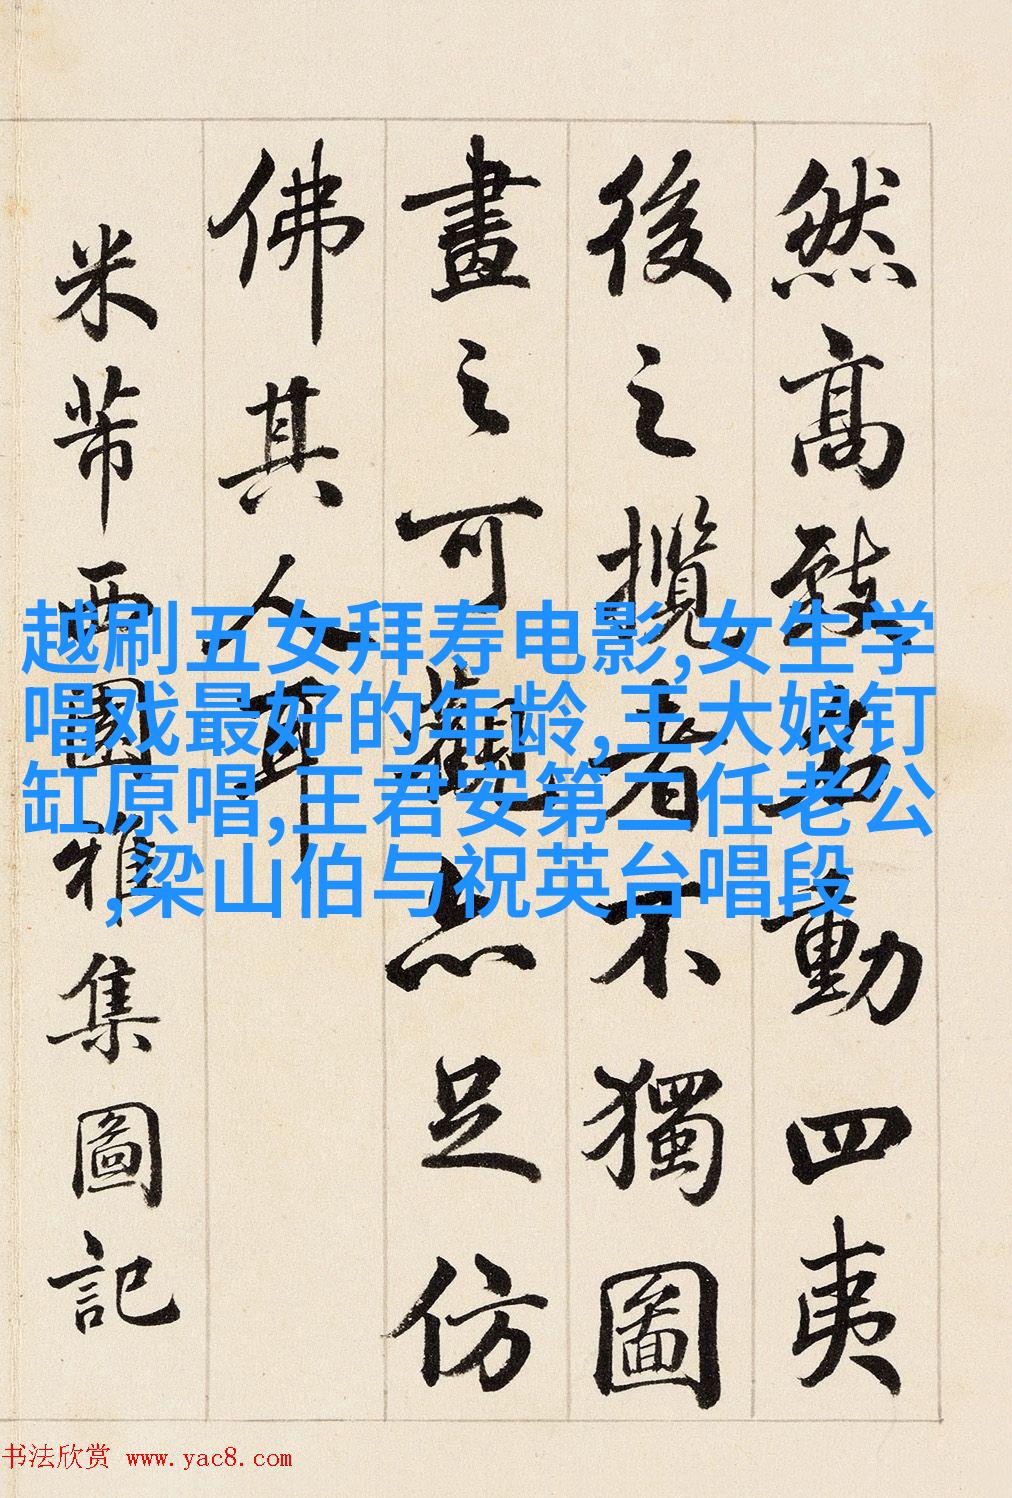 然高致名動四夷
後之攬者不獨圖
畫之可觀亦足仿
佛其人耳
米芾西園雅集圖記
越刷五女拜寿电影,女生学
唱戏最好的年龄,王大娘钉
缸原唱,王君安第二任老公
,梁山伯与祝英台唱段
书法欣赏 www.yac8.com